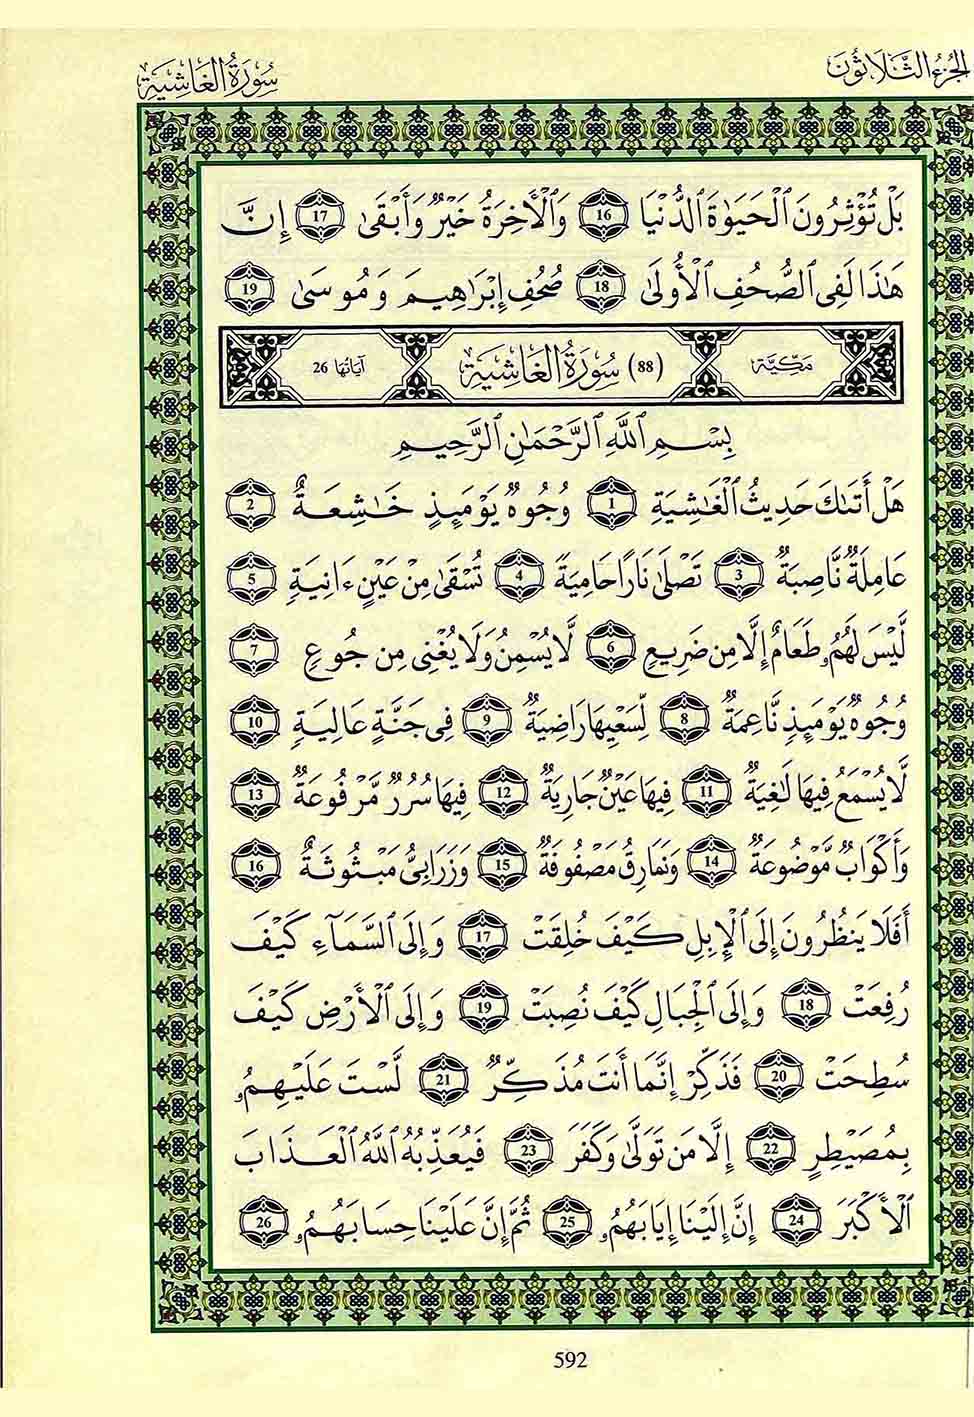 الجُزءُ الثَّلَاثُونَ
سُورَةُ الغَاشِيَةِ
بَلْ تُؤْثِرُونَ ٱلْحَيَوٰةَ ٱلدُّنْيَا 16 وَٱلْأَخِرَةُ خَيْرٌ وَأَبْقَىٰ 17 إِنَّ
هَٰذَا لَفِى ٱلصُّحُفِ ٱلْأُولَىٰ 18 صُحُفِ إِبْرَٰهِيمَ وَمُوسَىٰ 19
مَكِّيَّة (88) سُورَةُ الغَاشِيَةِ آيَاتُهَا 26
بِسْمِ ٱللَّهِ ٱلرَّحْمَٰنِ ٱلرَّحِيمِ
هَلْ أَتَىٰكَ حَدِيثُ ٱلْغَٰشِيَةِ 1 وُجُوهٌ يَوْمَئِذٍ خَٰشِعَةٌ 2
عَامِلَةٌ نَّاصِبَةٌ 3 تَصْلَىٰ نَارًا حَامِيَةً 4 تُسْقَىٰ مِنْ عَيْنٍ ءَانِيَةٍ 5
لَّيْسَ لَهُمُۥ طَعَامٌ إِلَّا مِن ضَرِيعٍ 6 لَّا يُسْمِنُ وَلَا يُغْنِى مِن جُوعٍ 7
وُجُوهٌ يَوْمَئِذٍ نَّاعِمَةٌ 8 لِّسَعْيِهَا رَاضِيَةٌ 9 فِى جَنَّةٍ عَالِيَةٍ 10
لَّا يُسْمَعُ فِيهَا لَٰغِيَةٌ 11 فِيهَا عَيْنٌ جَارِيَةٌ 12 فِيهَا سُرُرٌ مَّرْفُوعَةٌ 13
وَأَكْوَابٌ مَّوْضُوعَةٌ 14 وَنَمَارِقُ مَصْفُوفَةٌ 15 وَزَرَابِىُّ مَبْثُوثَةٌ 16
أَفَلَا يَنظُرُونَ إِلَى ٱلْإِبِلِ كَيْفَ خُلِقَتْ 17 وَإِلَى ٱلسَّمَآءِ كَيْفَ
رُفِعَتْ 18 وَإِلَى ٱلْجِبَالِ كَيْفَ نُصِبَتْ 19 وَإِلَى ٱلْأَرْضِ كَيْفَ
سُطِحَتْ 20 فَذَكِّرْ إِنَّمَا أَنتَ مُذَكِّرٌ 21 لَّسْتَ عَلَيْهِمُۥ
بِمُصَيْطِرٍ 22 إِلَّا مَن تَوَلَّىٰ وَكَفَرَ 23 فَيُعَذِّبُهُ ٱللَّهُ ٱلْعَذَابَ
ٱلْأَكْبَرَ 24 إِنَّ إِلَيْنَا إِيَابَهُمُۥ 25 ثُمَّ إِنَّ عَلَيْنَا حِسَابَهُمُۥ 26
592